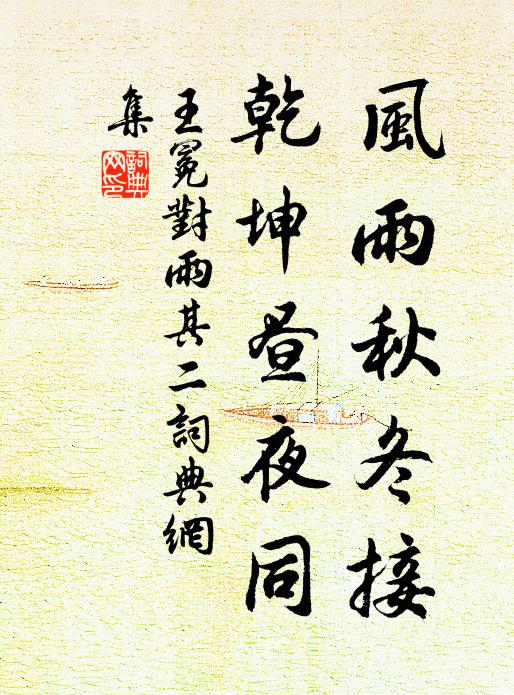 風雨秋冬接
乾坤晝夜同
王冕對雨其二詞典網
集
詞典
网印